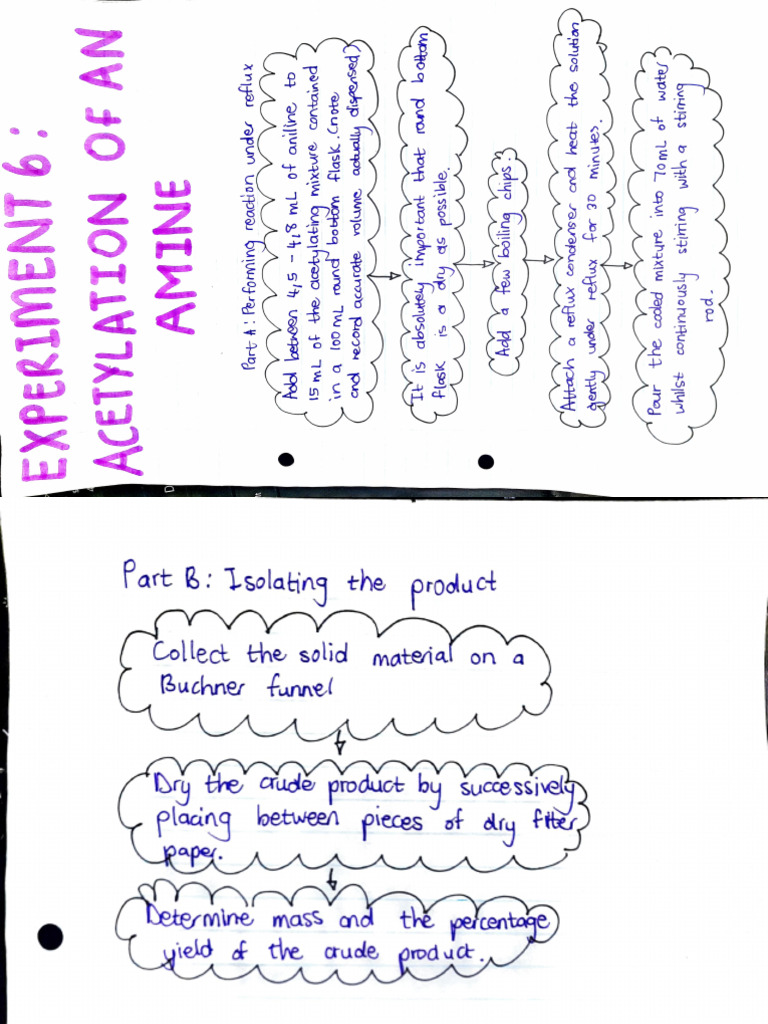 EXPERIMENT 6:
ACETYLATION OF AN
AMINE
Part A: Performing reaction under reflux
Add between 4,5 - 4,8 mL of aniline to
15 mL of the acetylating mixture contained
in a 100 mL round bottom flask. (note
and record accurate volume actually dispensed)
It is absolutely important that round bottom
flask is a dry as possible.
Add a few boiling chips.
Attach a reflux condenser and heat the solution
gently under reflux for 30 minutes.
Pour the cooled mixture into 70 mL of water
whilst continuously stirring with a stirring
rod.
Part B: Isolating the product
Collect the solid material on a
Buchner funnel
Dry the crude product by successively
placing between pieces of dry filter
paper.
Determine mass and the percentage
yield of the crude product.